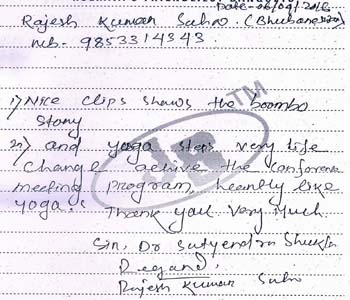 Date - 26/09/2016
Rajesh Kumar Sahoo. (Bhubaneswar)
Mb. 9853314343
1) Nice clips shows the boombo
Story
2) and yoga steps very life
Change achive the conference
meeting program, heartly like
yoga.
Thank you very much
Sir, Dr Satyendra Shukla
Regard,
Rajesh Kumar Sahoo
TM